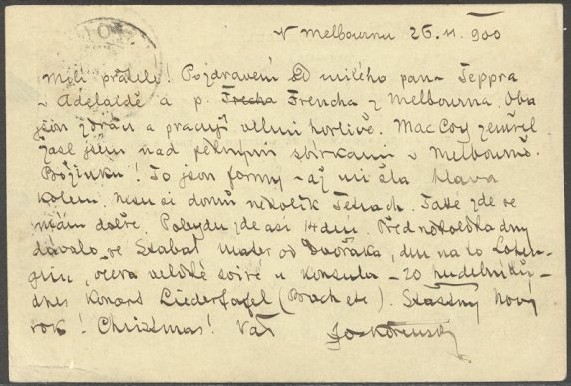 V Melbournu 26. 11. 900
Milí přátelé! Pozdravení od milého pana Teppra
v Adelaidě a p. Frecha Frencha z Melbourna. Oba
jsou zdrávi a pracují velmi horlivě. Mac Coy zemřel
žasl jsem nad pěknými sbírkami v Melbourně.
Božínku! To jsou formy – až mi šla hlava
kolem. Nesu si domů několik Také jde se
mám dobře. Pobydu zde asi 14 dní. Před několika dny
dávalo se Stabat mater od Dvořáka, dnu na to Lohen-
grin, včera veliké soiré u Konsula – 20 hudebníků –
dnes Konzert Liedertafel (Bach etc). Šťastný nový
rok! Christmas! Váš Jos. Kořenský